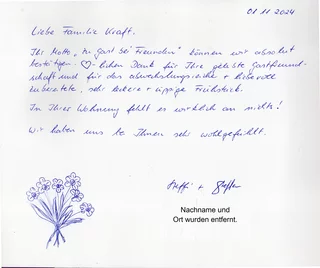 01.11.2024
Liebe Familie Kraft.
Ihr Motto „zu Gast bei Freunden" können wir absolut
bestätigen. ♡-lichen Dank für Ihre gelebte Gastfreund-
schaft und für das abwechslungsreiche + liebevoll
zubereitete, sehr leckere + üppige Frühstück.
In Ihrer Wohnung fehlt es wirklich an nichts!
Wir haben uns bei Ihnen sehr wohlgefühlt.
Steffi + Steffen
Nachname und
Ort wurden entfernt.